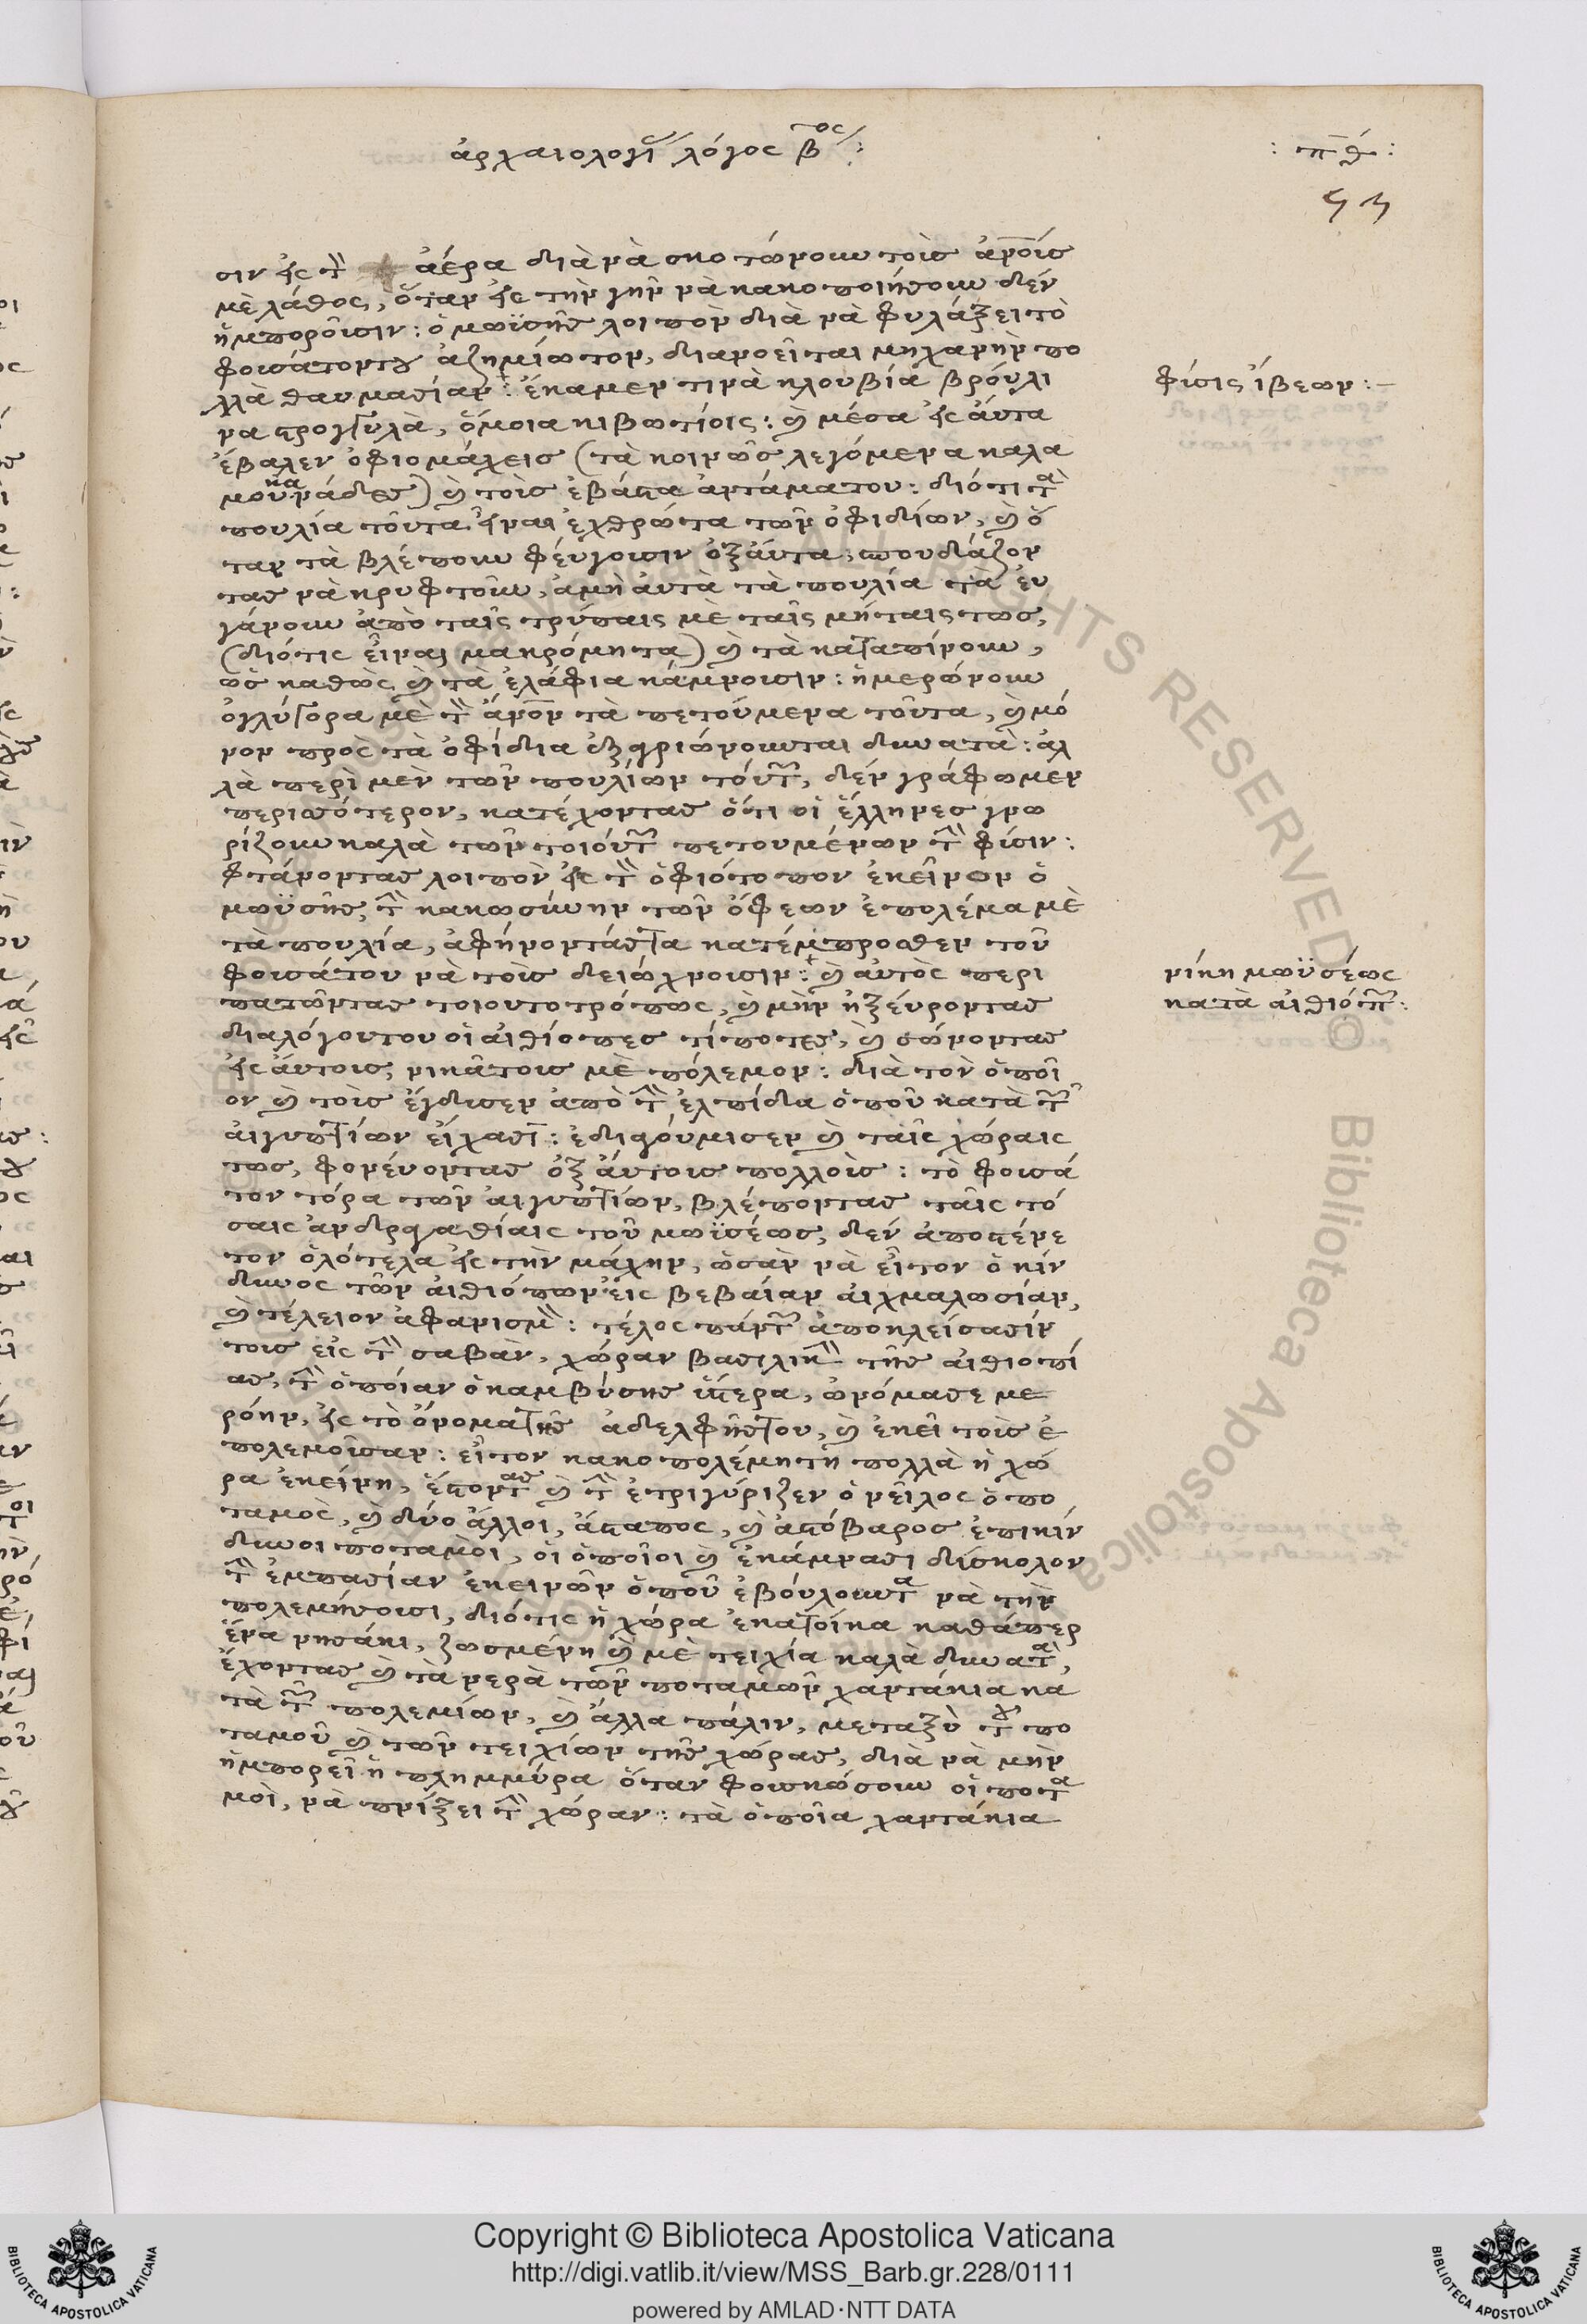 ἀρχαιολογί λόγος βος
: πθ :
93
σιν εἰς τὸν ἀέρα διὰ νὰ σκοτώνουν τοὺς ἀνοὺς
μὲ λάθος, ὅταν εἰς τὴν γῆν νὰ κακοποιήσουν δέν
ἠμποροῦσιν: ὁ μωϋσῆς λοιπὸν διὰ νὰ φυλάξει τὸ
φουσάτοντου ἀζημίωτον, διανοεῖται μηχανὴν πο
λλὰ θαυμασίαν: ἔκαμεν τινὰ κλουβία βρούλι
να στρογγυλὰ, ὅμοια κιβωτίοις: καὶ μέσα εἰς ἄυτα
ἔβαλεν ὀφιομάχεις (τὰ κοινῶς λεγόμενα καλα
μουκανάδες) καὶ τοὺς ἐβάστα ἀντάματου: διότι τὰ
πουλία τοῦτα εἶναι ἐχθρώτα τῶν ὀφιδίων, καὶ ὅ
ταν τὰ βλέπουν φεύγουσιν ὀξάυτα, σπουδάζον
τας νὰ κρυφτοῦν, ἀμὴ ἀυτὰ τὰ πουλία τὰ ἐυ
γάνουν ἀπὸ ταῖς τρύπαις μὲ ταῖς μήταις τως,
(διότις εἶναι μακρόμητα) καὶ τὰ καταπίνουν,
ὡς καθὼς καὶ τὰ ἐλάφια κάμνουσιν: ἡμερώνουν
ὀγλύγορα μὲ τὸν ἄνον τὰ πετούμενα τοῦτα, καὶ μό
νον πρὸς τὰ ὀφίδια ἐξαγριώνουνται δυνατὰ: ἀλ
λὰ περὶ μὲν τῶν πουλίων τούτων, δέν γράφωμεν
περισσότερον, κατέχοντας ὅτι οἱ ἕλληνες γνω
ρίζουν καλὰ τῶν τοιούτων πετουμένων τὴν φύσιν:
φτάνοντας λοιπὸν εἰς τὸν ὀφιότοπον ἐκεῖνον ὁ
μωϋσῆς, τὴν κακωσύνην τῶν ὄφεων ἐπολέμα μὲ
τὰ πουλία, ἀφήνοντάςτα κατέμπροσθεν τοῦ
φουσάτου νὰ τοὺς δειώχνουσιν: καὶ αὐτὸς περι
πατῶντας τοιουτοτρόπως, καὶ μὴν ἠξέυροντας
διαλόγουντου οἱ αἰθίοπες τίποτες, καὶ σώνοντας
εἰς ἄυτους, νικᾶτους μὲ πόλεμον: διὰ τὸν ὁποῖ
ον καὶ τοὺς ἔγδισεν ἀπὸ τὴν ἐλπίδα ὁποῦ κατὰ τῶν
ἀιγυπτίων εἴχασι: ἐδιαγούμισεν καὶ ταῖς χώραις
τως, φονέυοντας ὀξ ἄυτους πολλοὺς: τὸ φουσά
τον τόρα τῶν ἀιγυπτίων, βλέποντας ταῖς τό
σαις ἀνδραγαθίαις τοῦ μωϋσέως, δεν ἀποστένε
τον ὁλότελα εἰς τὴν μάχην, ὡσὰν νὰ εἶτον ὁ κίν
δυνος τῶν αἰθιόπων εἰς βεβαίαν αἰχμαλωσίαν,
καὶ τέλειον ἀφανισμὸν: τέλος πάντων ἀποκλείσασίν
τους εἰς τὴν σαβὰν, χώραν βασιλικὴν τῆς αἰθιοπί
ας, τὴν ὁποίαν ὁ καμβύσης ὕστερα, ὠνόμασε με
ρόην, εἰς τὸ ὄνοματῆς ἀδελφῆςτου, καὶ ἐκεῖ τοὺς ἐ
πολεμοῦσαν: εἶτον κακοπολέμητη πολλὰ ἡ χώ
ρα ἐκείνη, ἔστοντας καὶ τὴν ἐτριγύριζεν ὁ νεῖλος ὁ πο
ταμὸς, καὶ δύο ἄλλοι, ἄσταπος, καὶ ἀστόβαρος ἐπικίν
δυνοι ποταμοὶ, οἱ ὁποῖοι καὶ ἐκάμνασι δύσκολον
τὴν ἐμπασίαν ἐκεινῶν ὁποῦ ἐβούλουντα νὰ τὴν
πολεμήσουσι, διότις ἡ χώρα ἐκατοίκα καθάπερ
ἕνα νησάκι, ζωσμένη καὶ μὲ τειχία καλὰ δυνατὰ,
ἔχοντας καὶ τὰ νερὰ τῶν ποταμῶν χαντάκια κα
τὰ τῶν πολεμίων, καὶ ἄλλα πάλιν, μεταξὺ τοῦ πο
ταμοῦ καὶ τῶν τειχίων τῆς χώρας, διὰ νὰ μὴν
ἠμπορεῖ ἡ πλημμύρα ὅταν φουσκώσουν οἱ ποτα
μοὶ, νὰ πνίξει τὴν χώραν: τὰ ὁποῖα χαντάκια
φύσις ἴβεων:–
νίκη μωϋσέως
κατὰ αἰθιόπων:
Copyright © Biblioteca Apostolica Vaticana
http://digi.vatlib.it/view/MSS_Barb.gr.228/0111
powered by AMLAD·NTT DATA